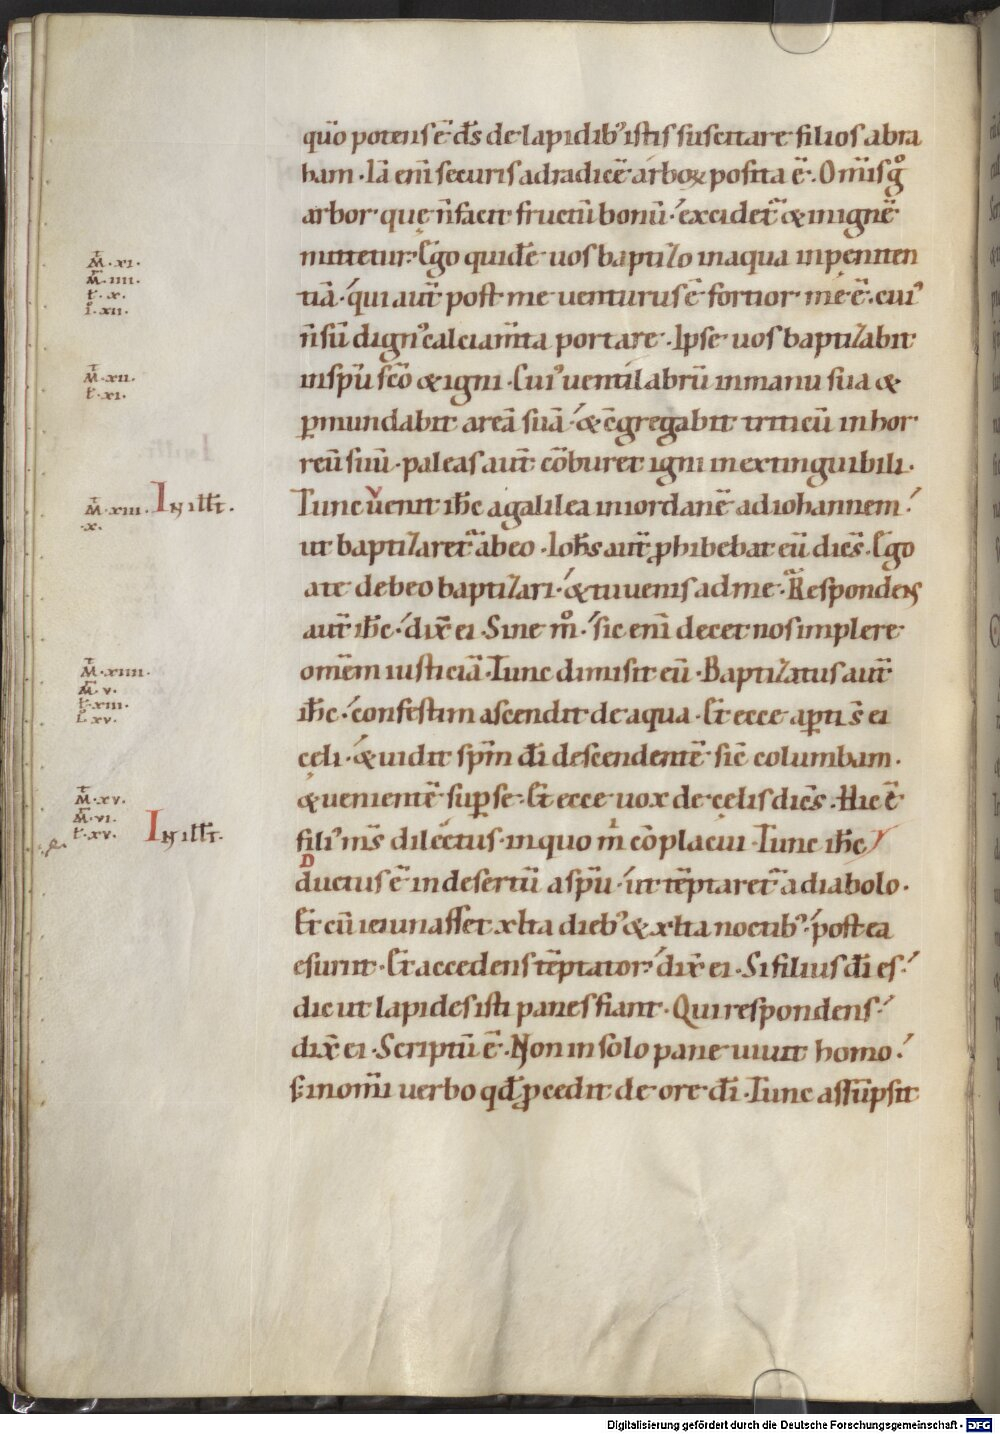 qm̄o potens ē d̄s de lapidib; istis suscitare filios abra
ham. Iā eni̅ securis ad radicē arboꝝ posita ē. Om̄is gͦ
arbor quę n̄ facit fructū bonū. excidet᷑ & in ignē
mittetur. Ego quidē uos baptizo in aqua in pęniten
tiā. qui aut̄ post me uenturus ē fortior me ē. cuiꝰ
n̄ sū dignꝰ calciam̄ta portare. Ipse uos baptizabit
in sp̄u sc̄o & igni. Cuiꝰ uentilabrū in manu sua &
ꝑmundabit areā suā. & c̄gregabit triticū in hor
reū suū. paleas aut̄ cōburet igni inextinguibili.
Tunc uenit ih̄c a galilea in iordanē ad iohannem
ut baptizaret᷑ ab eo. Ioh̄s aut̄ ꝓhibebat eū dicēs. Ego
a te debeo baptizari. & tu uenis ad me. Respondens
aut̄ ih̄c. dix̄ ei. Sine mͦ. sic eni̅ decet nos implere
om̄em iusticiā. Tunc dimisit eū. Baptizatus aut̄
ih̄c. confestim ascendit de aqua. Et ecce aꝑti s̄ ei
cęli. & uidit sp̄m d̄i descendentē sic̄ columbam.
& uenientē suꝑ se. Et ecce uox de cęlis dicēs. Hic ē
filiꝰ m̄s dilectus. in quo m̍ cōplacui. Tunc ih̄c
ductus ē in desertū a sp̄u. ut tēptaret᷑ a diabolo.
Et cū ieiunasset xlta dieb; & xlta noctib;. postea
esuriit. Et accedens tēptator. dix̄ ei. Si filius d̄i es.
dic ut lapides isti panes fiant. Qui respondens
dix̄ ei. Scriptū ē. Non in solo pane uiuit homo.
s; in om̄i uerbo qd̄ ꝓcedit de ore d̄i. Tunc assūpsit
M̄. xi.
M̄. iiii.
L. x.
i. xii.
M̄. xii.
L. xi.
M̄. xiii. In ill̄t.
.x.
M̄. xiiii.
M̄. v.
L. xiii.
i. xv.
M̄. xv.
M̄. vi.
L. xv. In ill̄t.
Digitalisierung gefördert durch die Deutsche Forschungsgemeinschaft - DFG